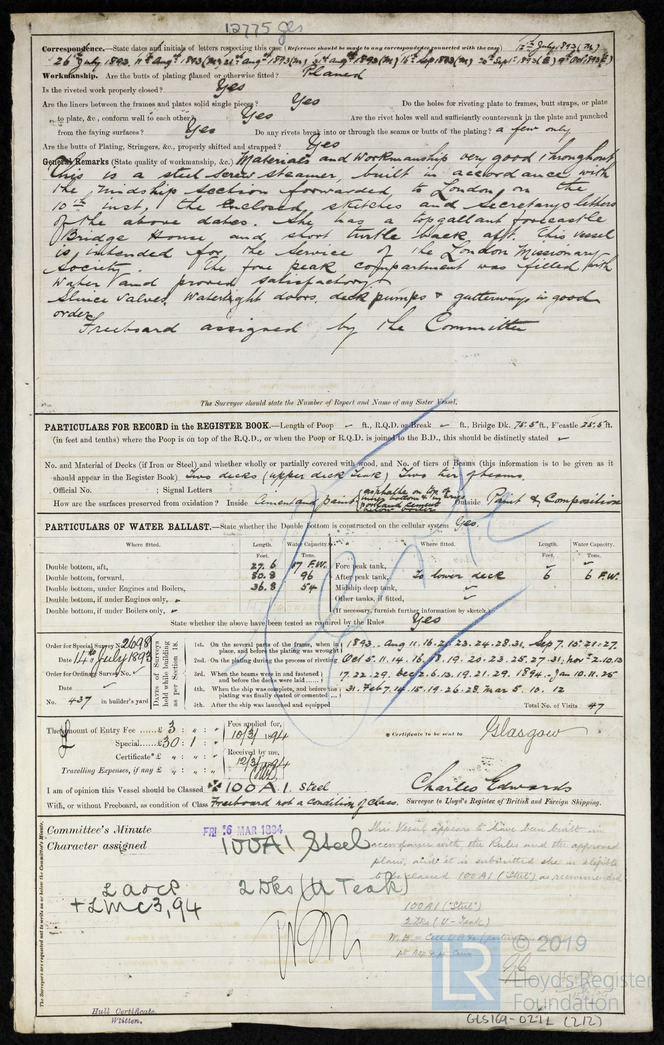 12775 gls
Correspondence.—State dates and initials of letters respecting this case (Reference should be made to any correspondence connected with the case) 12th July 1893 (M)
26th July 1893, 11th Augt 1893 (M) 21st Augt 1893 (M) 24 Augt 1893 (M) 16th Sep 1893 (M) 20th Sept 1893 (E) 9th Oct 1893 (E)
Workmanship. Are the butts of plating planed or otherwise fitted? Planed
Is the riveted work properly closed? Yes
Are the liners between the frames and plates solid single pieces? Yes Do the holes for riveting plate to frames, butt straps, or plate
to plate, &c., conform well to each other? Yes Are the rivet holes well and sufficiently countersunk in the plate and punched
from the faying surfaces? Yes Do any rivets break into or through the seams or butts of the plating? a few only
Are the butts of Plating, Stringers, &c., properly shifted and strapped? Yes
General Remarks (State quality of workmanship, &c.) Materials and Workmanship very good throughout
This is a steel Screw Steamer, built in accordance with
the Midship Section forwarded to London on the
10th inst, the Enclosed sketches and Secretary's letters
of the above dates. She has a topgallant forecastle
Bridge House and short turtle back aft. This vessel
is intended for the service of the London Missionary
Society. The fore peak compartment was filled with
water and proved satisfactory
Sluice valves, Watertight doors, deck pumps & gutterways in good
order
Freeboard assigned by the Committee
The Surveyor should state the Number of Report and Name of any Sister Vessel.
PARTICULARS FOR RECORD in the REGISTER BOOK.—Length of Poop ft., R.Q.D. or Break ft., Bridge Dk. 75.5 ft. F'castle 25.5 ft.
(in feet and tenths) where the Poop is on top of the R.Q.D., or when the Poop or R.Q.D. is joined to the B.D., this should be distinctly stated
No. and Material of Decks (if Iron or Steel) and whether wholly or partially covered with wood, and No. of tiers of Beams (this information is to be given as it
should appear in the Register Book) Two decks (upper deck Teak) Two tiers of beams
Official No. ; Signal Letters
How are the surfaces preserved from oxidation? Inside Cement and paint Outside Paint & Composition
PARTICULARS OF WATER BALLAST.—State whether the Double Bottom is constructed on the cellular system Yes.
Where fitted. Length. Water Capacity. Where fitted. Length. Water Capacity.
Feet. Tons. Feet. Tons.
Double bottom, aft, 27.6 17 F.W. Fore peak tank,
Double bottom, forward, 50.8 96 After peak tank, To lower deck 6 6 F.W.
Double bottom, under Engines and Boilers, 36.8 54 Midship deep tank,
Double bottom, if under Engines only, Other tanks, if fitted,
Double bottom, if under Boilers only, (If necessary, furnish further information by sketch.)
State whether the above have been tested as required by the Rules Yes
Order for Special Survey No. 2698
Date 14th July 1893
Order for Ordinary Survey No.
Date
No. 437 in builder's yard
Dates of Surveys held while building as per Section 18.
1st. On the several parts of the frame, when in place, and before the plating was wrought 1893. Aug 11. 16. 21. 23. 24. 28. 31. Sep 7. 15. 21. 27.
2nd. On the plating during the process of riveting Oct 5. 11. 14. 16. 18. 19. 20. 23. 25. 27. 31; Nov 2. 10. 13
3rd. When the beams were in and fastened, and before the decks were laid 17. 22. 29. Dec 2. 6. 13. 19. 21. 29. 1894. Jan 10. 11. 25
4th. When the ship was complete, and before the plating was finally coated or cemented 31. Feb 7. 14. 15. 19. 26. 28. Mar 5. 10. 12
5th. After the ship was launched and equipped Total No. of Visits 47
The Amount of Entry Fee £ 3 : :
Special £ 30 : 1 :
Certificate £ : :
Travelling Expenses, if any £ : :
Fees applied for,
10/3/1894
Received by me,
12/3/1894
Certificate to be sent to Glasgow
I am of opinion this Vessel should be Classed 100A1 Steel Charles Edwards
With, or without Freeboard, as condition of Class Freeboard not a condition of class. Surveyor to Lloyd's Register of British and Foreign Shipping.
Committee's Minute FRI 16 MAR 1894
Character assigned 100A1 Steel
2 Dks (U Teak)
L A & C P
+ LMC 3,94
This Vessel appears to have been built in
accordance with the Rules and the approved
plans, and it is submitted she is eligible
to be classed 100A1 ("Steel") as recommended
100A1 ("Steel")
2 Dks (U-Teak)
The Surveyors are requested not to write on or below the Committee's Minute.
Hull Certificate
Written.
© 2019
LR
Lloyd's Register
Foundation
GLS169-0271 (2/2)